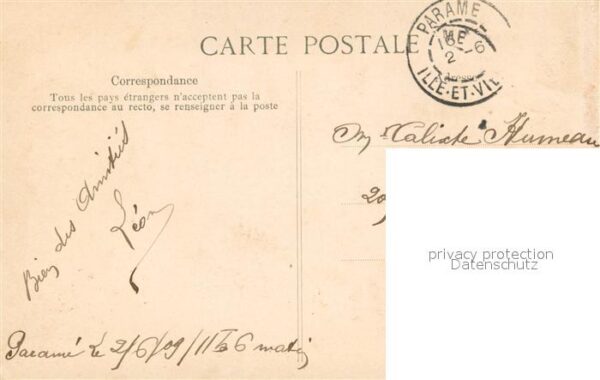 CARTE POSTALE
PARAMÉ
16
2-6
ILLE-ET-VIL
Correspondance
Adresse
Tous les pays étrangers n'acceptent pas la
correspondance au recto, se renseigner à la poste
Calixte Humeau
20
Bien des Amitiés
Léon
Paramé le 2/6/09/11h 6 matin
privacy protection
Datenschutz